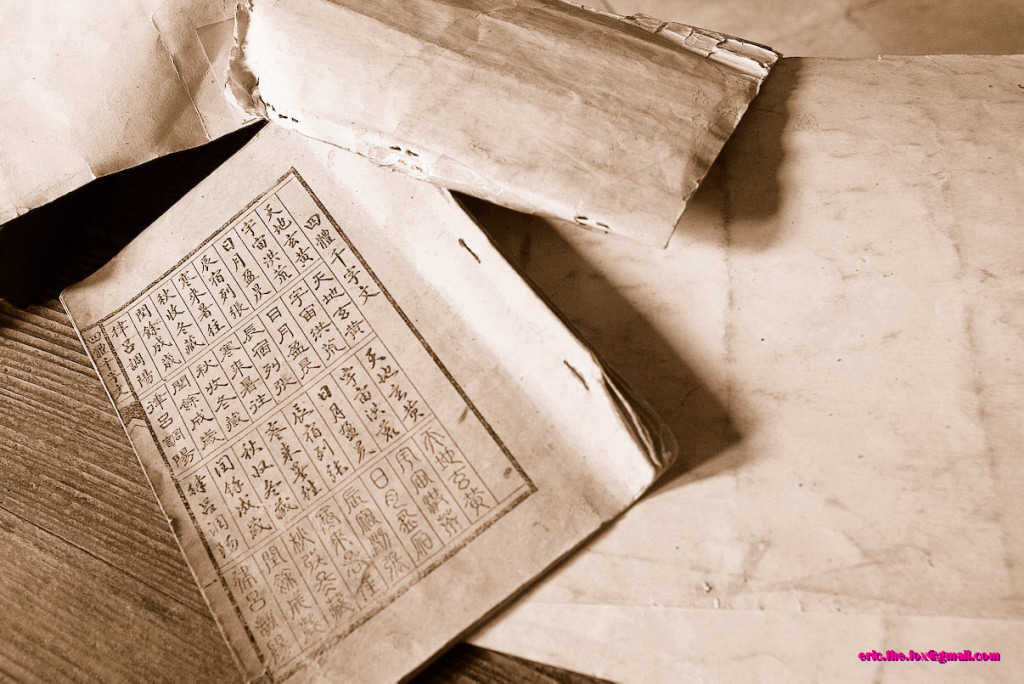 四體千字文
天地玄黃
宇宙洪荒
日月盈昃
辰宿列張
寒來暑往
秋收冬藏
閏餘成歲
律呂調陽
天地玄黃
宇宙洪荒
日月盈昃
辰宿列張
寒來暑往
秋收冬藏
閏餘成歲
律呂調陽
天地玄黃
宇宙洪荒
日月盈昃
辰宿列張
寒來暑往
秋收冬藏
閏餘成歲
律呂調陽
天地玄黃
宇宙洪荒
日月盈昃
辰宿列張
寒來暑往
秋收冬藏
閏餘成歲
律呂調陽
四體千字文
eric.the.fox@gmail.com